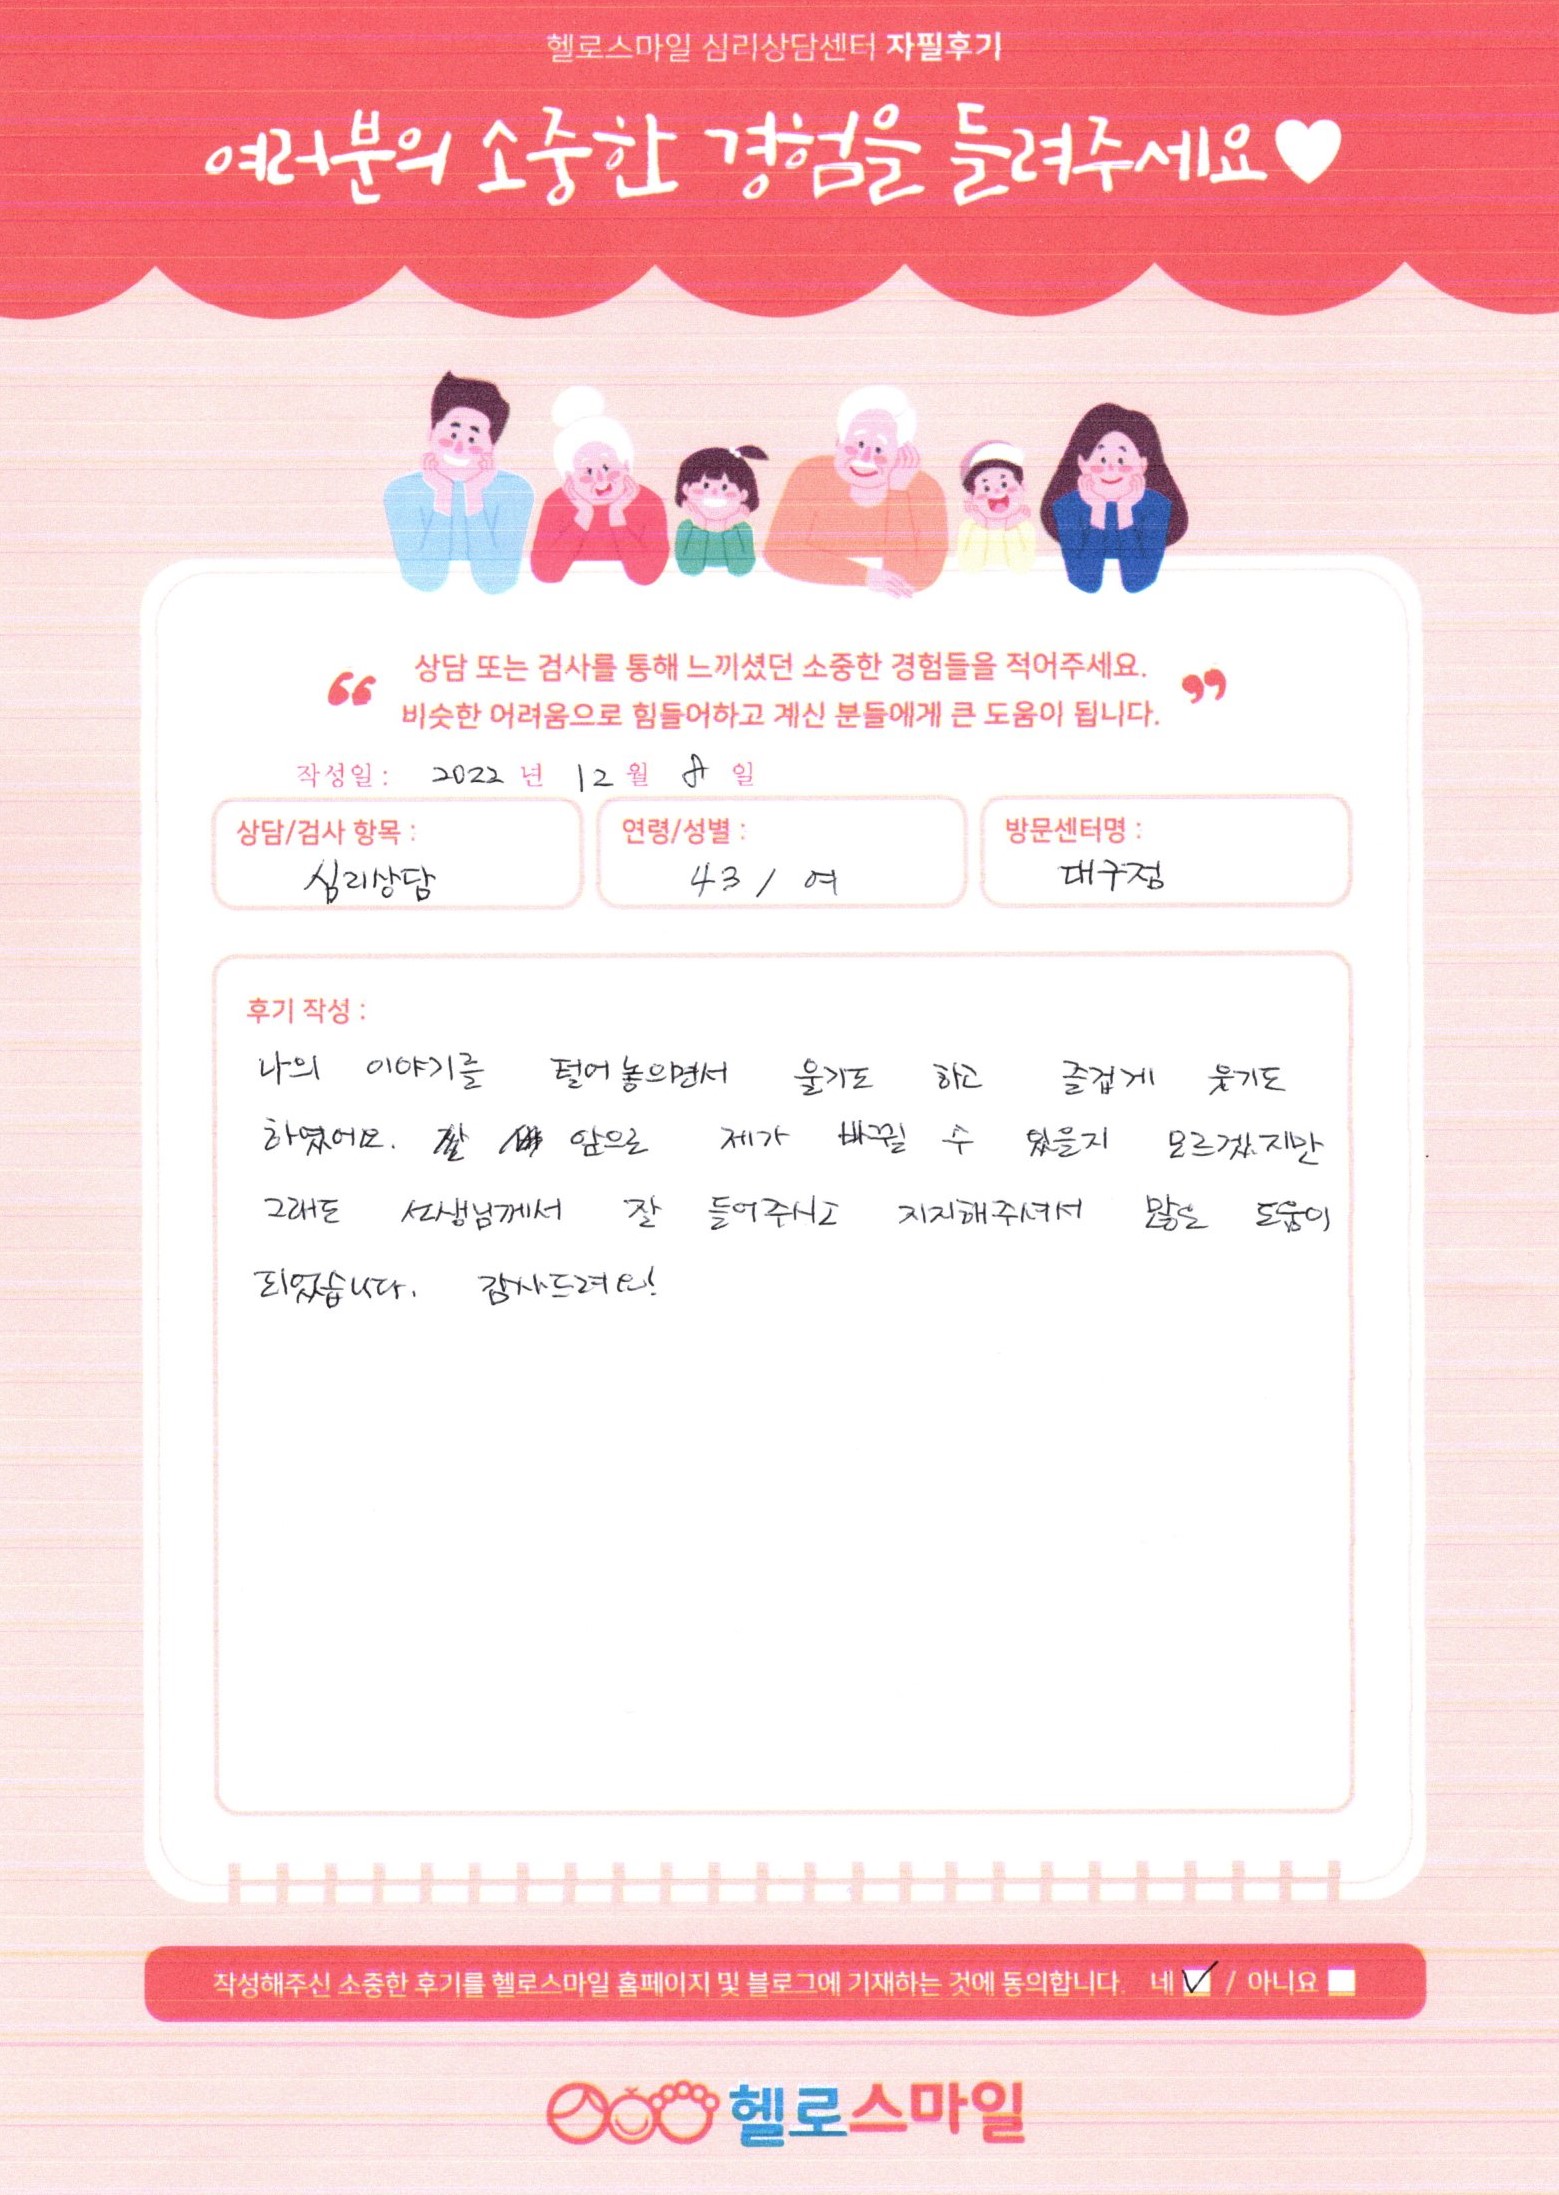 헬로스마일 심리상담센터 자필후기
여러분의 소중한 경험을 들려주세요♥
“ 상담 또는 검사를 통해 느끼셨던 소중한 경험들을 적어주세요. ”
비슷한 어려움으로 힘들어하고 계신 분들에게 큰 도움이 됩니다.
작성일 : 2022 년 12 월 8 일
상담/검사 항목 : 연령/성별 : 방문센터명 :
심리상담 43 / 여 대구점
후기 작성 :
나의 이야기를 털어놓으면서 울기도 하고 즐겁게 웃기도
하였어요. 앞으로 제가 바뀔 수 있을지 모르겠지만
그래도 선생님께서 잘 들어주시고 지지해주셔서 많은 도움이
되었습니다. 감사드려요!
작성해주신 소중한 후기를 헬로스마일 홈페이지 및 블로그에 기재하는 것에 동의합니다. 네 ✓ / 아니요
헬로스마일